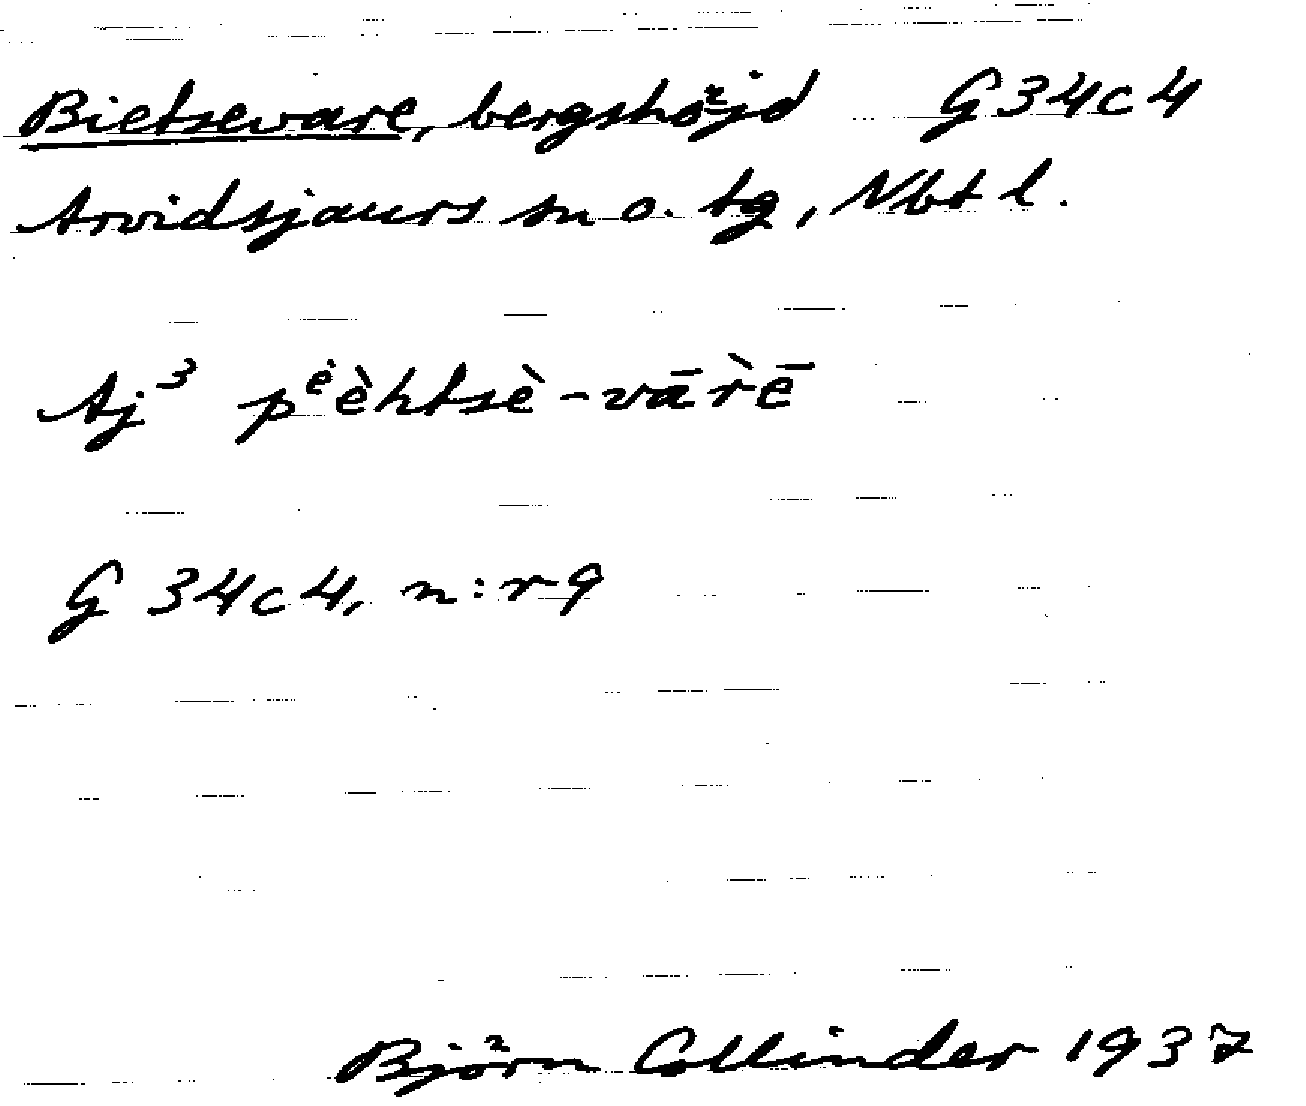 Bietsevare, bergshöjd G34c4
Arvidsjaurs sn o. tg, Nbt l.
Aj³ pᵉ̀èhtsè-vār̀ē
G 34c4, n:r 9
Björn Collinder 1937